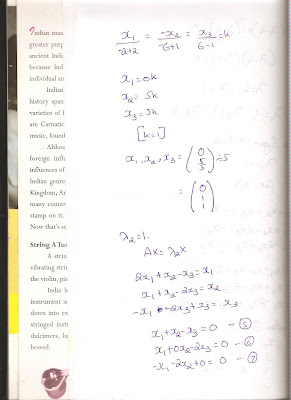 Indian mus
greater purp
ancient Indi
because Ind
individual an
Indian
history span
varieties of I
are Carnatic
music, found
Althou
foreign influ
influences of
Indian genre
Kingdom, Ar
many countr
stamp on it.
Now that's so
String A Tun
A strin
vibrating strin
the violin, pia
India h
instrument is
down into tw
stringed instr
dulcimers, In
bowed.
x₁/(-2+2) = -x₂/(-6+1) = x₃/(6-1) = k
x₁ = 0k
x₂ = 5k
x₃ = 5k
[k=1]
x₁, x₂, x₃ = (0 5 5) ÷5
= (0 1 1)
λ₂=1.
AX = λ₂X
2x₁+x₂-x₃ = x₁
x₁+x₂-2x₃ = x₂
-x₁-2x₂+x₃ = x₃
x₁+x₂-x₃ = 0 - ⑤
x₁+0x₂-2x₃ = 0 - ⑥
-x₁-2x₂+0 = 0 - ⑦